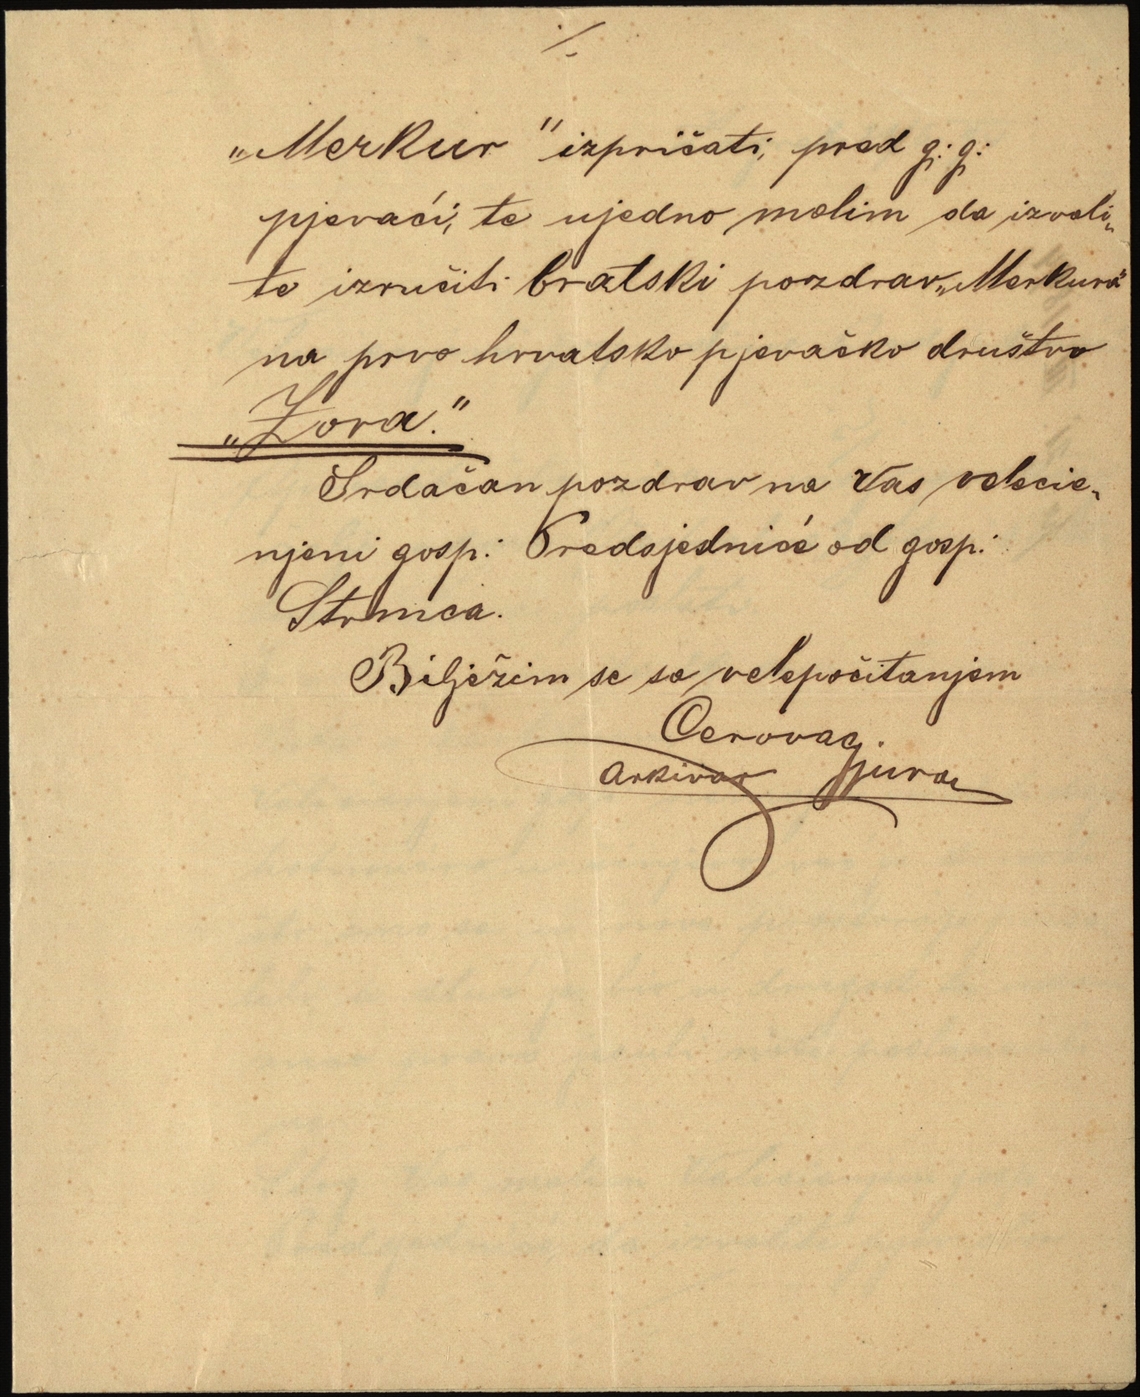 „Merkur" izpričati, pred g: g:
pjevači, te ujedno molim da izvoli„
te izručiti bratski pozdrav „Merkura"
na prvo hrvatsko pjevačko društvo
„Zora."
Srdačan pozdrav na Vas velecie„
njeni gosp: Predsjedniče od gosp:
Strmca.
Bilježim se sa velepočitanjem
Cerovac
Arkivar Gjura